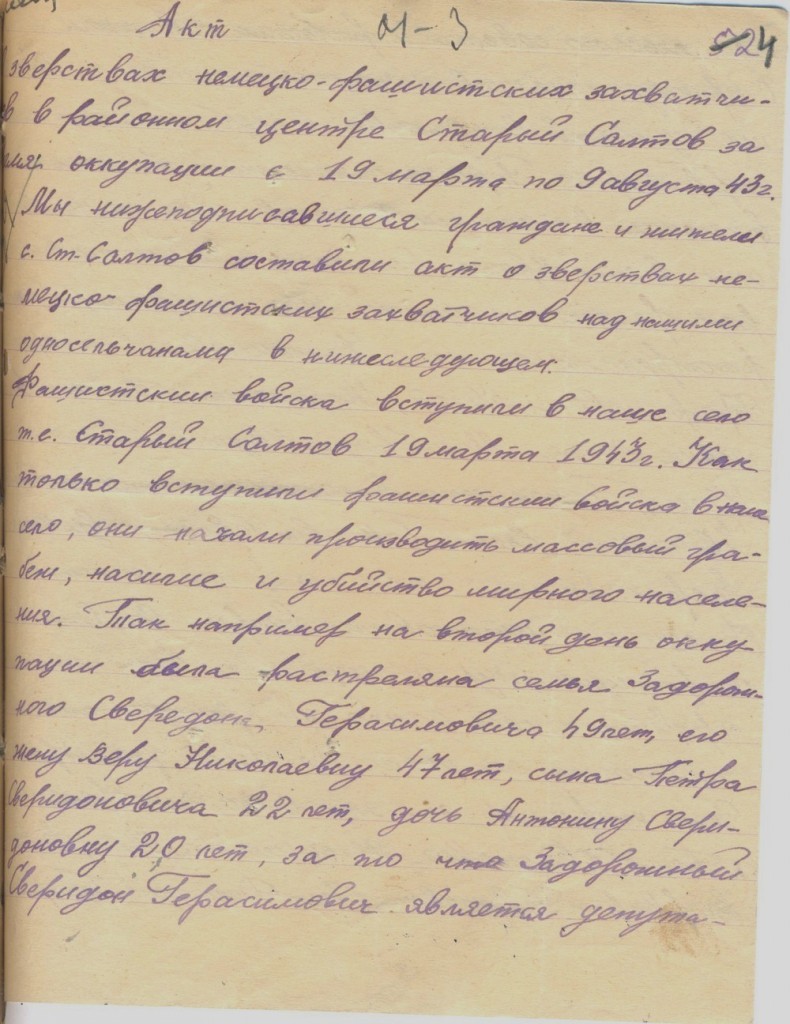 Акт М-3 24
зверствах немецко-фашистских захватчи-
в в районном центре Старый Салтов за
оккупации с 19 марта по 9 августа 43 г.
Мы нижеподписавшиеся граждане и жители
с. Ст-Салтов составили акт о зверствах не-
мецко-фашистских захватчиков над нашими
односельчанами в нижеследующем.
Фашистские войска вступили в наше село
т.е. Старый Салтов 19 марта 1943 г. Как
только вступили фашистские войска в наше
село, они начали производить массовый гра-
беж, насилие и убийство мирного населе-
ния. Так например на второй день окку-
пации была растреляна семья Задорож-
ного Свередона Герасимовича 49 лет, его
жену Веру Николаевну 47 лет, сына Петра
Сверидоновича 22 лет, дочь Антонину Свери-
доновну 20 лет, за то что Задорожный
Сверидон Герасимович является депута-